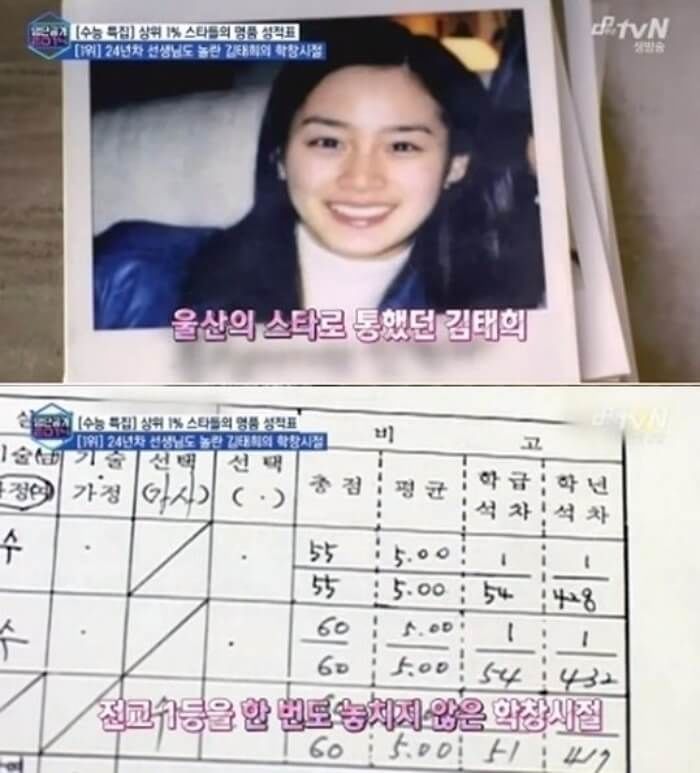 [수능 특집] 상위 1% 스타들의 명품 성적표
[1위] 24년차 선생님도 놀란 김태희의 학창시절
tvN
생방송
울산의 스타로 통했던 김태희
[수능 특집] 상위 1% 스타들의 명품 성적표
[1위] 24년차 선생님도 놀란 김태희의 학창시절
tvN
비 고
기술 선택 선택 총점 평균 학급 학년
가정 (가사) ( . ) 석차 석차
수 55 5.00 1 1
55 5.00 54 428
수 60 5.00 1 1
60 5.00 54 432
전교 1등을 한 번도 놓치지 않은 학창시절
60 5.00 51 417